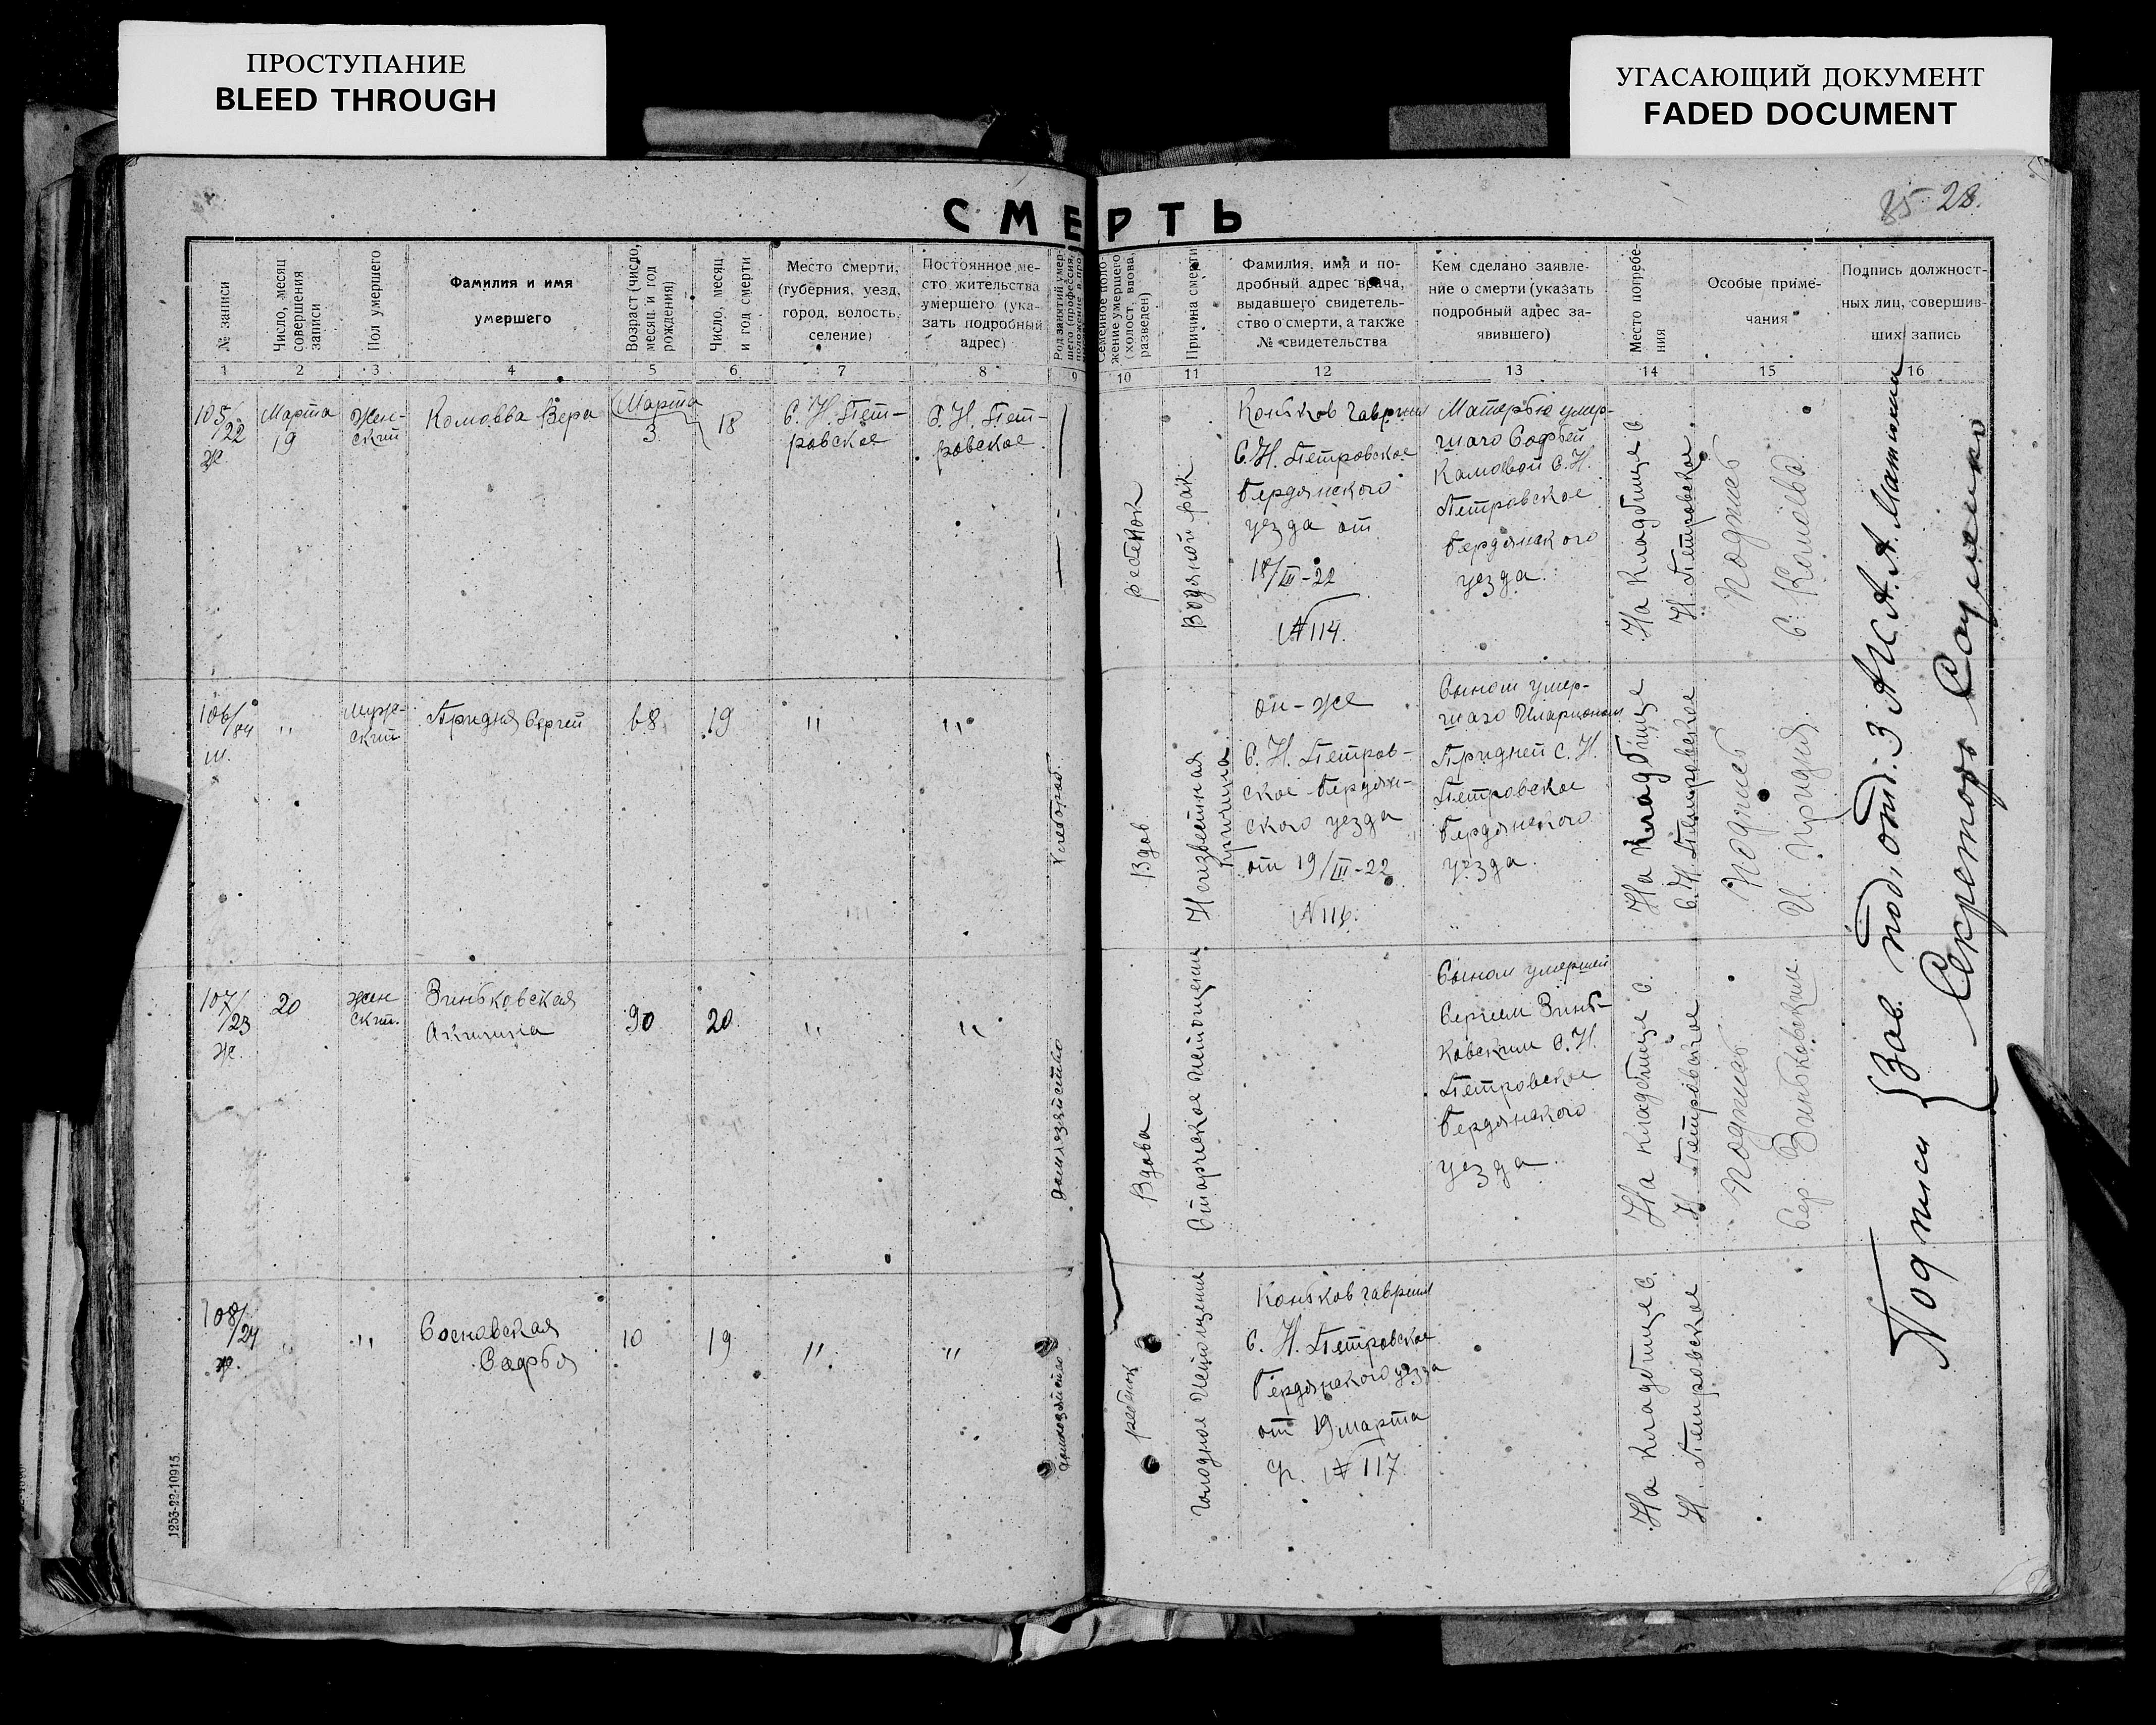 ПРОСТУПАНИЕ
BLEED THROUGH
УГАСАЮЩИЙ ДОКУМЕНТ
FADED DOCUMENT
85 28.
СМЕРТЬ
№ записи
Число, месяц
совершения
записи
Пол умершего
Фамилия и имя
умершего
Возраст (число,
месяц и год
рождения)
Число, месяц
и год смерти
Место смерти,
(губерния, уезд,
город, волость,
селение)
Постоянное ме-
сто жительства
умершего (ука-
зать подробный
адрес)
Род занятий умер-
шего (профессия,
положение в про
Семейное поло-
жение умершего
(холост, вдова,
разведен)
Причина смерти
Фамилия, имя и по-
дробный адрес врача,
выдавшего свидетель-
ство о смерти, а также
№ свидетельства
Кем сделано заявле-
ние о смерти (указать
подробный адрес за-
явившего)
Место погребе-
ния
Особые приме-
чания
Подпись должност-
ных лиц, совершив-
ших запись
1 2 3 4 5 6 7 8 9 10 11 12 13 14 15 16
105/22
ж.
Марта
19
Жен-
ский
Комовва Вера
Марта
3
18
С. Н. Пет-
ровское
С. Н. Пет-
ровское
ребенок
Водяной рак
Коньков Гавриил
С. Н. Петровское
Бердянского
уезда от
18/III-22
№ 114.
Матерью умер-
шаго Софьей
Камовой С. Н.
Петровское
Бердянского
уезда.
На кладбище С.
Н. Петровское.
Подпись
С. Комова.
106/84
м.
"
Муж-
ский
Придня Сергей
68
19
"
"
хлебороб.
Вдов
Неизвестная
причина
он-же
С. Н. Петров-
ское Бердян-
ского уезда
от 19/III-22
№ 116.
Сыном умер-
шаго Иларионом
Придней С. Н.
Петровское
Бердянского
уезда.
На кладбище
С. Н. Петровское
Подпись
И. Придня.
107/23
ж.
20
жен
ский.
Зиньковская
Акилина
90
20.
"
"
домхозяйство
Вдова
Старческое истощение.
Сыном умершей
Сергеем Зинь-
ковским С. Н.
Петровское
Бердянского
уезда.
На кладбище С.
Н. Петровское
Подпись
Сер. Зиньковский.
108/24
ж.
"
"
Сосновская
Софья
10
19
"
"
домохозяйство
ребенок
Голодное истощение
Коньков Гавриил
С. Н. Петровское
Бердянского уезда
от 19 марта
№ 117.
На кладбище С.
Н. Петровское
Подписи { Зав. под. отд. ЗАГС А. А.
Секретарь
1253-22-10915.